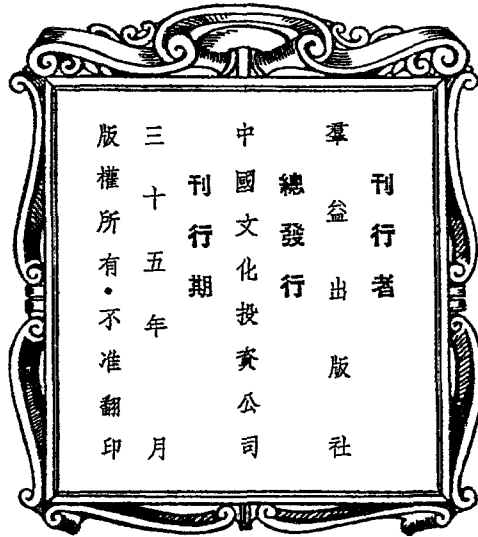 刊行者
羣益出版社
總發行
中國文化投資公司
刊行期
三十五年 月
版權所有•不准翻印